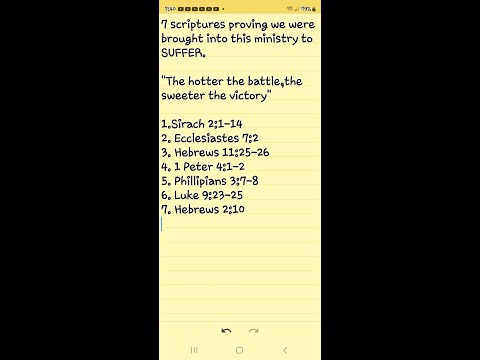 7:40 79%
7 scriptures proving we were
brought into this ministry to
SUFFER.
"The hotter the battle,the
sweeter the victory"
1.Sirach 2:1-14
2. Ecclesiastes 7:2
3. Hebrews 11:25-26
4. 1 Peter 4:1-2
5. Phillipians 3:7-8
6. Luke 9:23-25
7. Hebrews 2:10